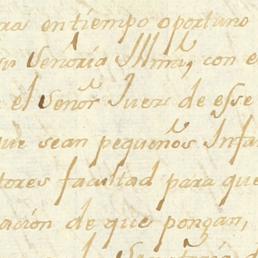 ra en tiempo oportuno
su Señoria Illma, con e
el Señor Juez de esse
que sean pequeños Infa
tores facultad para que
acion de que pongan,
Secretaria d